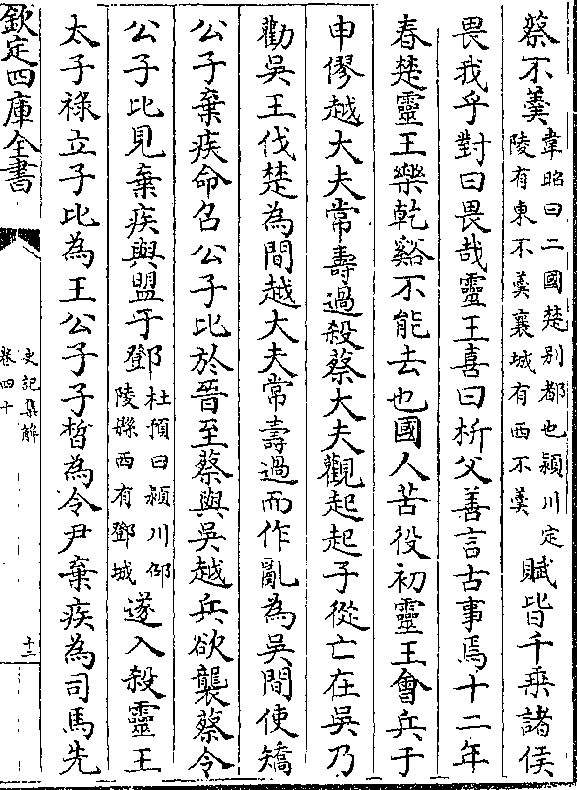 蔡不羹韋昭曰二國楚别都也潁川定陵有東不羹襄城有西不羹賦皆千乗諸侯
畏我乎對曰畏哉靈王喜曰析父善言古事焉十二年
春楚靈王樂乾谿不能去也國人苦役初靈王㑹兵于
申僇越大夫常壽過殺蔡大夫觀起起子從亡在吳乃
勸吳王伐楚為間越大夫常壽過而作亂為吳間使矯
公子棄疾命召公子比於晉至蔡與吳越兵欲襲蔡令
公子比見棄疾與盟于鄧杜預曰潁川邵陵縣西有鄧城遂入殺靈王
太子祿立子比為王公子子晳為令尹棄疾為司馬先
欽定四庫全書
史記集解
卷四十
十三